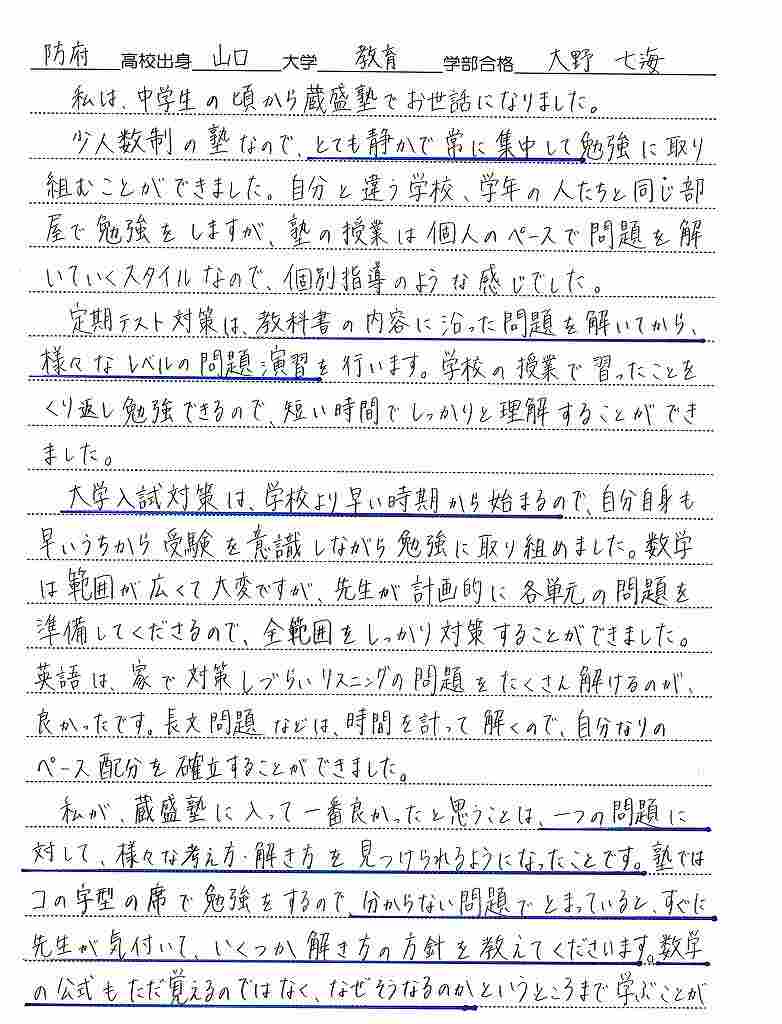 防府 高校出身 山口 大学 教育 学部合格 大野 七海
私は、中学生の頃から蔵盛塾でお世話になりました。
少人数制の塾なので、とても静かで常に集中して勉強に取り
組むことができました。自分と違う学校、学年の人たちと同じ部
屋で勉強をしますが、塾の授業は個人のペースで問題を解
いていくスタイルなので、個別指導のような感じでした。
定期テスト対策は、教科書の内容に沿った問題を解いてから、
様々なレベルの問題演習を行います。学校の授業で習ったことを
くり返し勉強できるので、短い時間でしっかりと理解することができ
ました。
大学入試対策は、学校より早い時期から始まるので、自分自身も
早いうちから受験を意識しながら勉強に取り組めました。数学
は範囲が広くて大変ですが、先生が計画的に各単元の問題を
準備してくださるので、全範囲をしっかり対策することができました。
英語は、家で対策しづらいリスニングの問題をたくさん解けるのが、
良かったです。長文問題などは、時間を計って解くので、自分なりの
ペース配分を確立することができました。
私が、蔵盛塾に入って一番良かったと思うことは、一つの問題に
対して、様々な考え方・解き方を見つけられるようになったことです。塾では
コの字型の席で勉強をするので、分からない問題でとまっていると、すぐに
先生が気付いて、いくつか解き方の方針を教えてくださいます。数学
の公式もただ覚えるのではなく、なぜそうなるのかというところまで学ぶことが